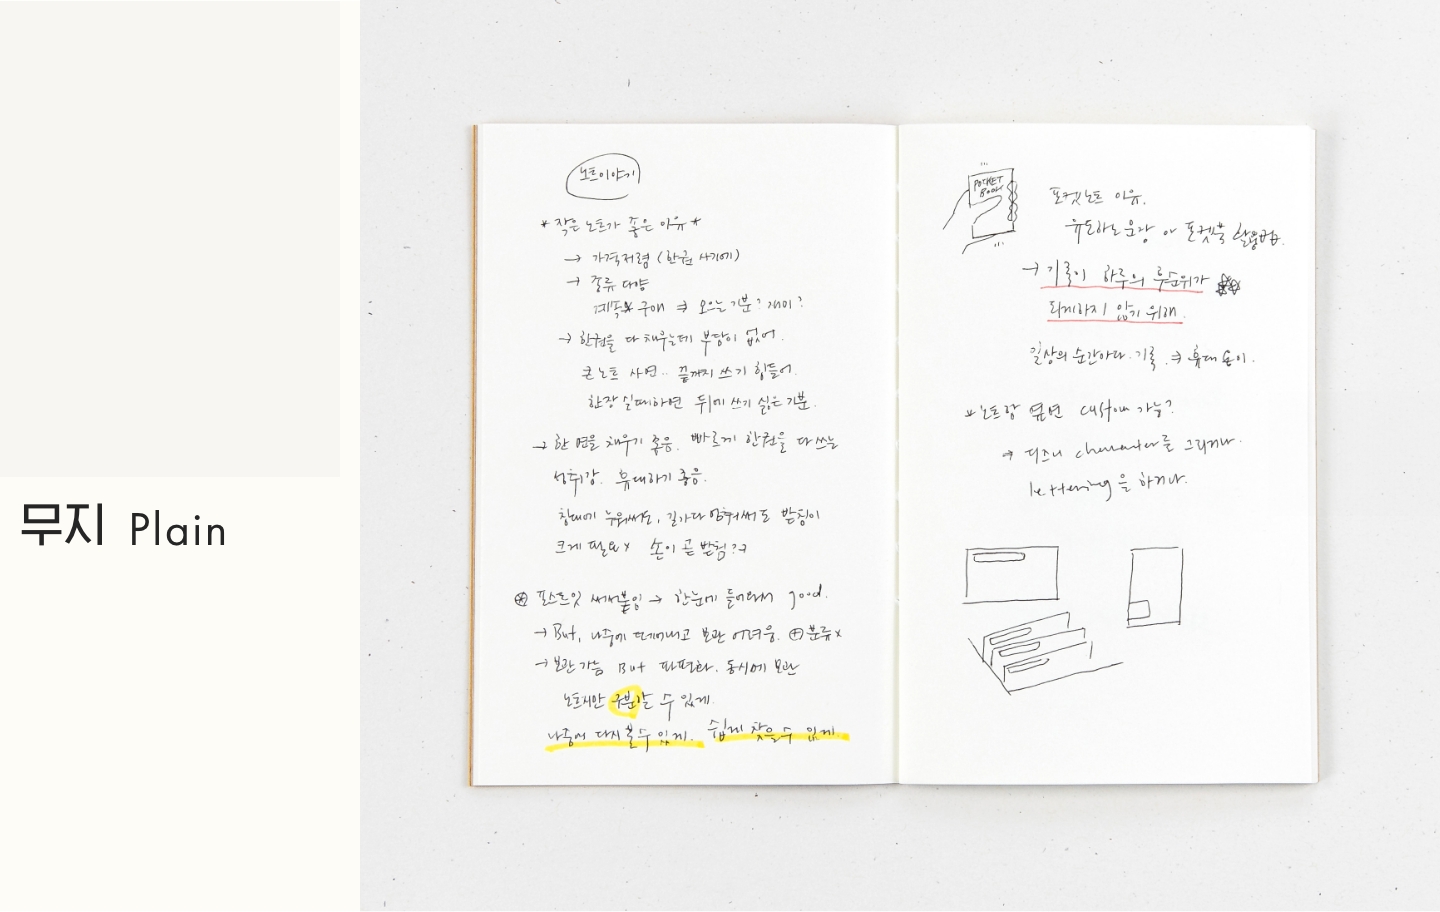 무지 Plain
노트이야기
* 작은 노트가 좋은 이유 *
→ 가격저렴 (한권 사기에)
→ 종류 다양
구매 ⇒ 오늘 기분? 재미?
→ 한권을 다 채우는데 부담이 없어.
큰 노트 사면.. 끝까지 쓰기 힘들어.
한장 실패하면 뒤에 쓰기 싫은 기분.
→ 한 면을 채우기 좋음. 빠르게 한권을 다 쓰는
성취감. 휴대하기 좋음.
침대에 누워써도, 길가다 받침이
크게 필요x 손이 곧 받침?→
포스트잇 써서붙임 → 한눈에 들어와서 good.
→ But, 나중에 떼어내고 보관 어려움. ⊕분류x
→ 보관가능 But 파편화. 동시에 보관
노트지만 구분할 수 있게.
나중에 다시 볼 수 있게. 쉽게 찾을 수 있게
POCKET
BOOK
포켓노트 이유.
유도하는 문장 or 포켓북 활용법.
→ 기록이 하루의 후순위가
되게하지 않기 위해.
일상의 순간마다 기록. ⇒ 휴대 용이.
custom 가능?
→ 디즈니 character를 그리거나.
lettering을 하거나.